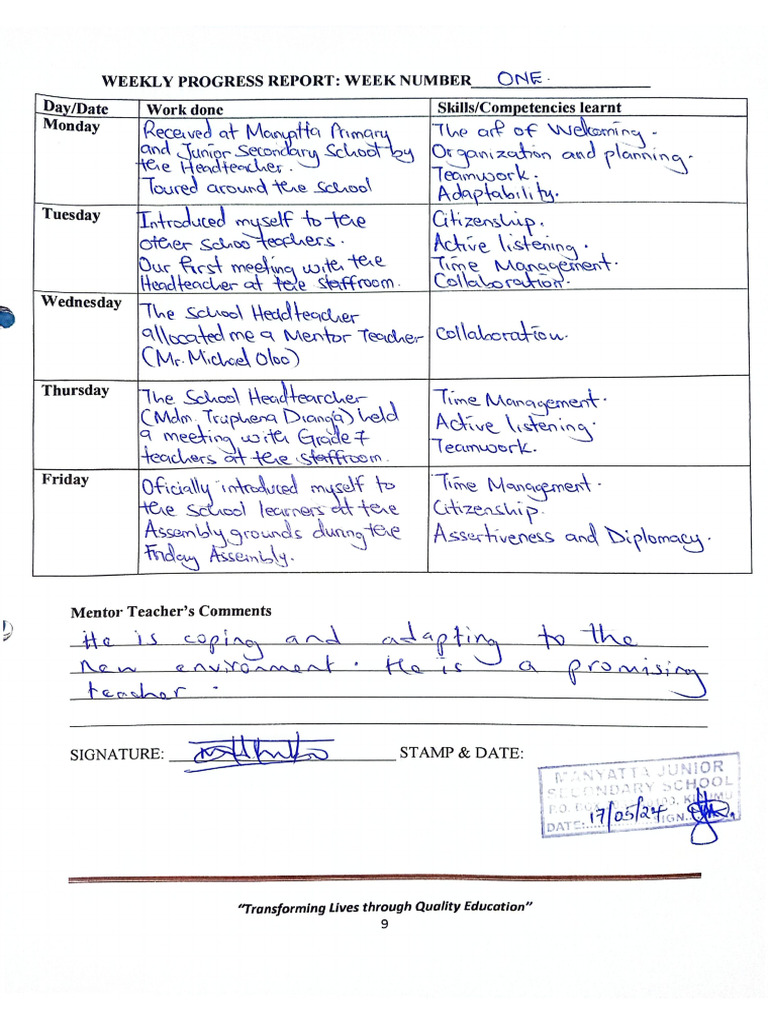 WEEKLY PROGRESS REPORT: WEEK NUMBER ONE.
Day/Date Work done Skills/Competencies learnt
Monday
Received at Manyatta Primary
and Junior Secondary School by
the Headteacher.
Toured around the school
The art of Welcoming.
Organization and planning.
Teamwork.
Adaptability.
Tuesday
Introduced myself to the
other schoo teachers.
Our first meeting with the
Headteacher at the staffroom.
Citizenship.
Active listening.
Time Management.
Collaboration.
Wednesday
The School Headteacher
allocated me a Mentor Teacher
(Mr. Michael Oloo)
Collaboration.
Thursday
The School Headtearcher
(Mdm. Truphena Dianga) held
a meeting with Grade 7
teachers at the staffroom.
Time Management.
Active listening.
Teamwork.
Friday
Oficially introduced myself to
the school learners at the
Assembly grounds during the
Friday Assembly.
Time Management.
Citizenship.
Assertiveness and Diplomacy.
Mentor Teacher's Comments
He is coping and adapting to the
new environment. He is a promising
teacher.
SIGNATURE: STAMP & DATE:
MANYATTA JUNIOR
SECONDARY SCHOOL
P.O. BOX
DATE: 17/05/24 SIGN.
"Transforming Lives through Quality Education"
9